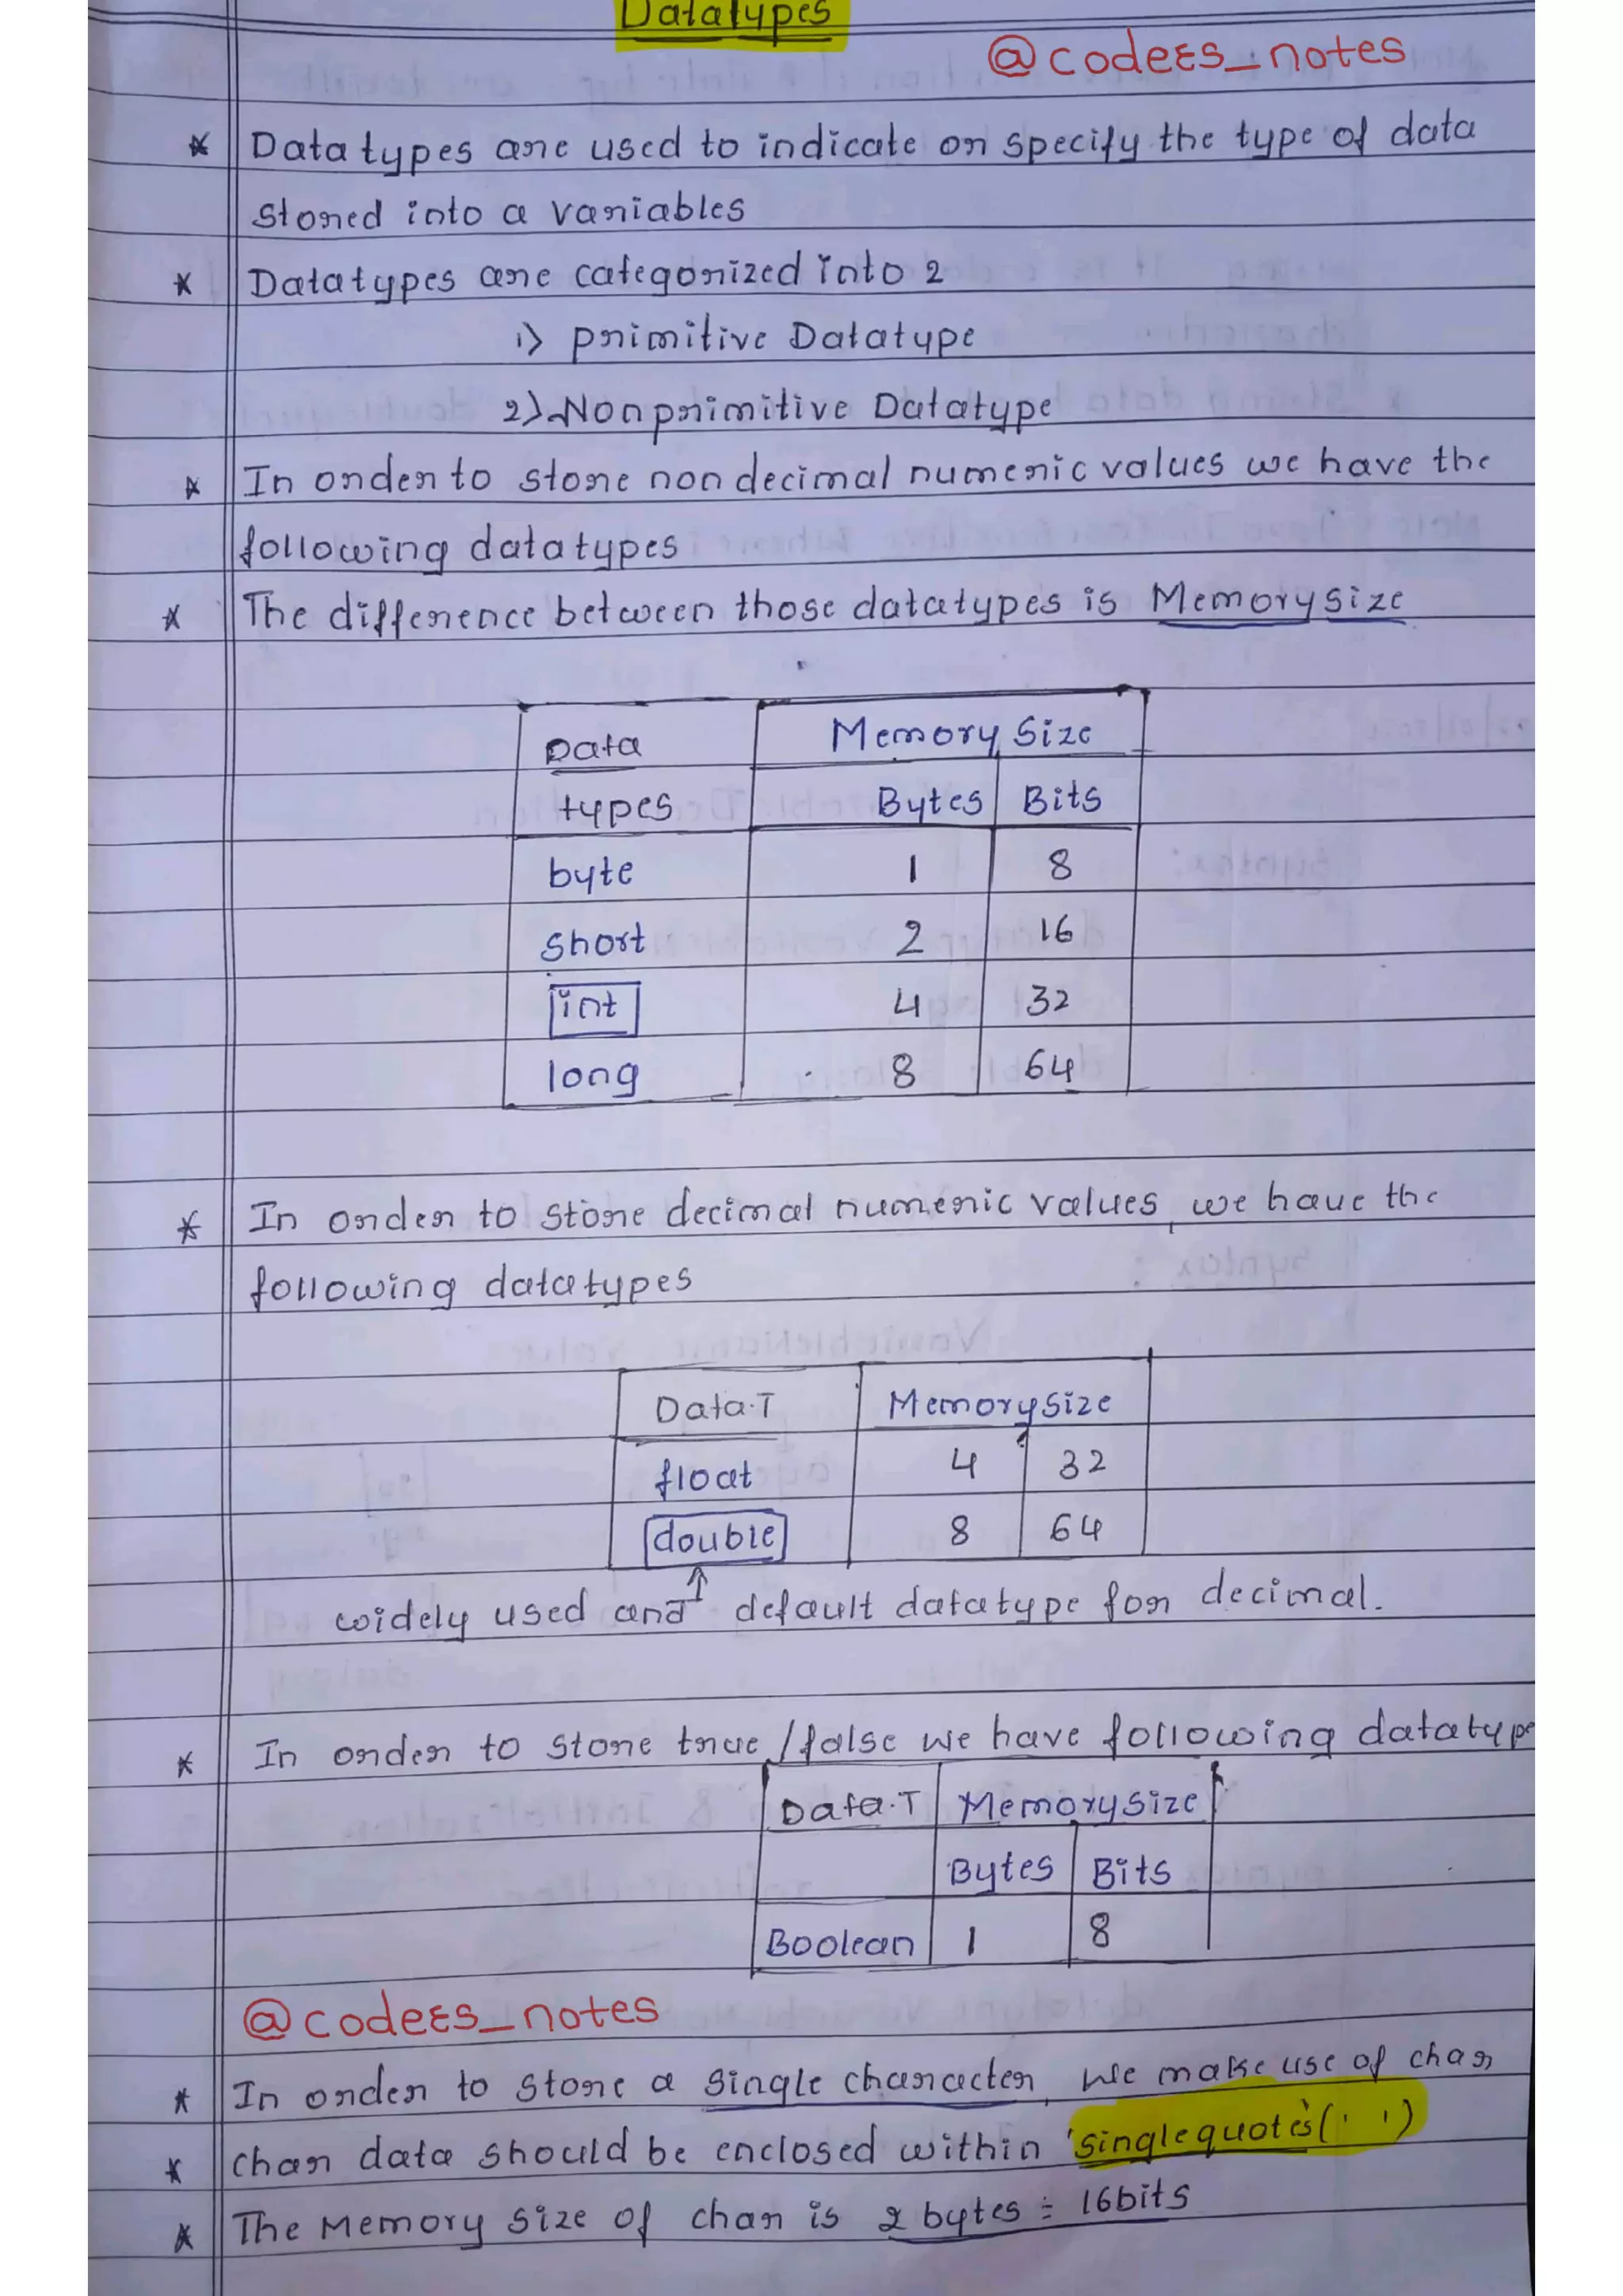 Datatypes
@codees_notes
* Datatypes are used to indicate or specify the type of data
stored into a variables
* Datatypes are categorized into 2
1) primitive Datatype
2) Nonprimitive Datatype
* In order to store non decimal numeric values we have the
following datatypes
* The difference between those datatypes is Memory size
Data Memory Size
types Bytes Bits
byte 1 8
short 2 16
int 4 32
long 8 64
* In order to store decimal numeric values, we have the
following datatypes
Data.T Memory size
float 4 32
double 8 64
widely used and default datatype for decimal.
* In order to store true/false we have following datatype
Data.T Memory size
Bytes Bits
Boolean 1 8
@codees_notes
* In order to store a single character, we make use of char
* char data should be enclosed within 'single quotes(' ')
* The Memory size of char is 2 bytes = 16bits